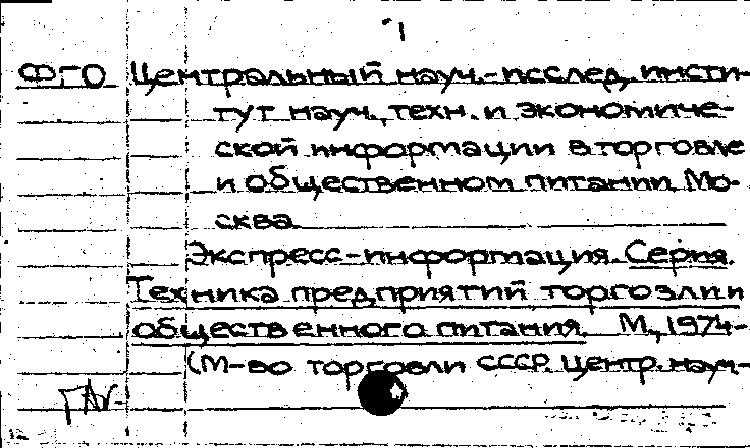 1
ФГО Центральный науч.-исслед. инсти-
тут науч., техн. и экономиче-
ской информации в торговле
и общественном питании. Мо-
сква.
Экспресс-информация. Серия.
Техника предприятий торговли и
общественного питания. М., 1974-
(М-во торговли СССР. Центр. науч.-